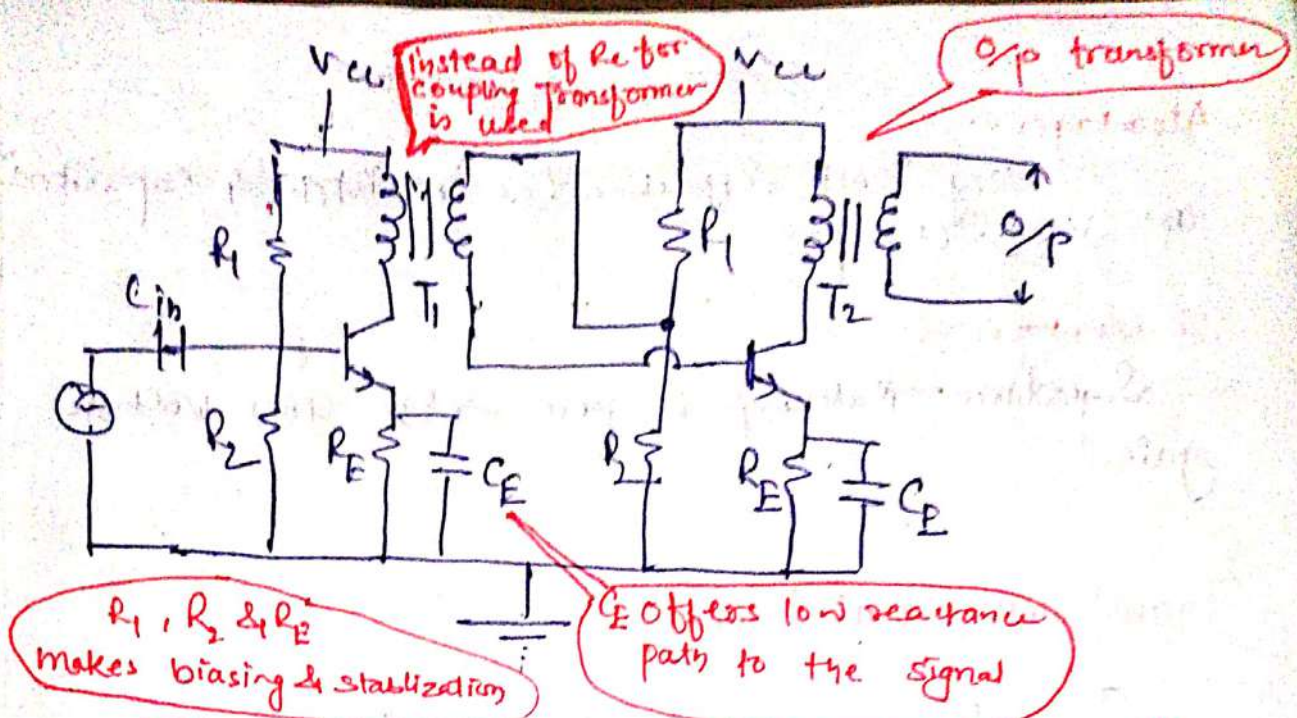 Vcc
instead of Rc for
coupling Transformer
is used
Vcc
O/p transformer
R1
T1
R1
T2
O/p
Cin
R2
RE
CE
R2
RE
CE
R1, R2 & RE
makes biasing & stablization
CE Offers low reactance
path to the signal